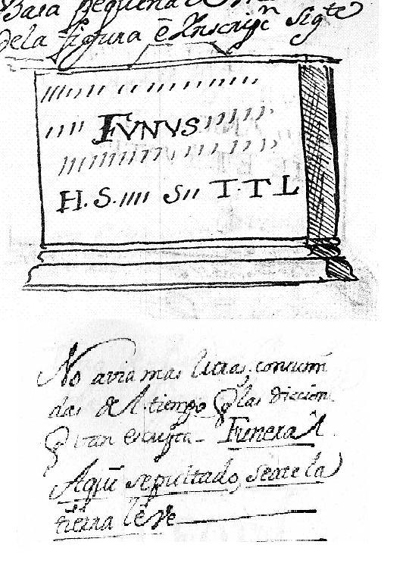 Basa pequeña de
dela figura è Inscripc̃ sigte
FVNVS
H. S. S T·T L
No avia mas letras, consumi
das del tiempo q̃ las diccion
q̃ van escritas _ Funeral
Aqui sepultado, seate la
tierra leve